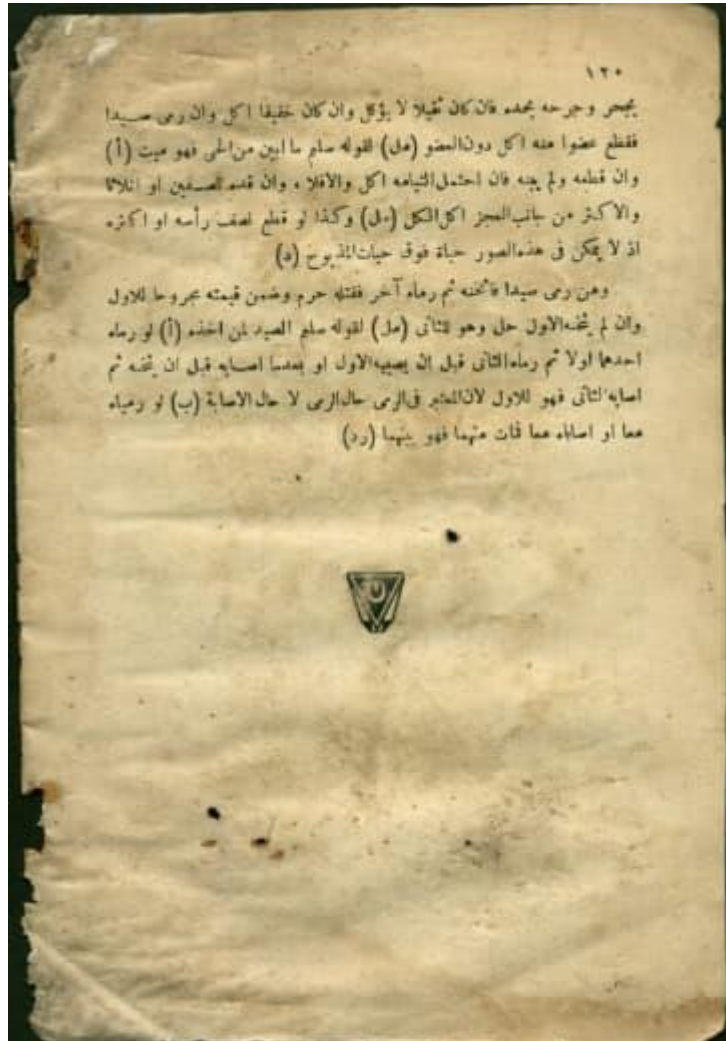 ١٢٠
بحجر وجرحه بحده فان كان ثقيلا لا يؤكل وان كان خفيفا اكل وان رمى صيدا
فقطع عضوا منه اكل دون العضو (مل) لقوله سلم ما ابين من الحى فهو ميت (أ)
وان قطعه ولم يبنه فان احتمل التيامه اكل والافلاء وان قده نصفين او اثلاثا
والاكثر من جانب العجز اكل الكل (مل) وكذا لو قطع نصف رأسه او اكثره
اذ لا يمكن فى هذه الصور حياة فوق حيات المذبوح (د)
ومن رمى صيدا فاثخنه ثم رماه آخر فقتله حرم وضمن قيمته مجروحا للاول
وان لم يثخنه الاول حل وهو للثانى (مل) لقوله سلم الصيد لمن اخذه (أ) لو رماه
احدهما اولا ثم رماه الثانى قبل ان يصيبه الاول او بعدما اصابه قبل ان يثخنه ثم
اصابه الثانى فهو للاول لان المعتبر فى الرمى حال الرمى لا حال الاصابة (ب) لو رمياه
معا او اصاباه معا فمات منهما فهو بينهما (رد)